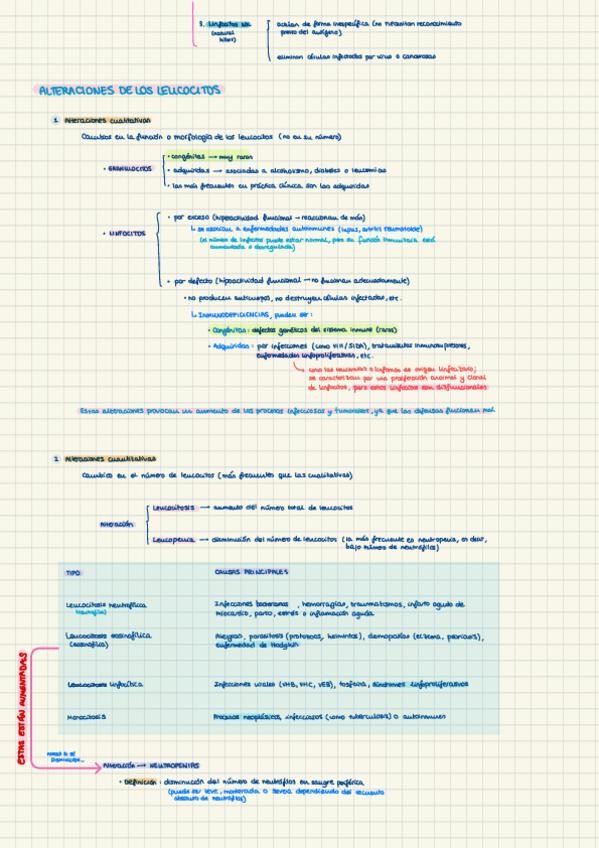 3. Linfocitos NK
(natural
killer)
actúan de forma inespecífica (no necesitan reconocimiento
previo del antígeno).
eliminan células infectadas por virus o cancerosas
ALTERACIONES DE LOS LEUCOCITOS
1 Alteraciones cualitativas
Cambios en la función o morfología de los leucocitos (no en su número)
• GRANULOCITOS
• congénitas → muy raras
• adquiridas → asociadas a alcoholismo, diabetes o leucemias
• las más frecuentes en práctica clínica son las adquiridas
• LINFOCITOS
• por exceso (hiperactividad funcional → reaccionan de más)
↳ se asocian a enfermedades autoinmunes (lupus, artritis reumatoide)
(el número de linfocitos puede estar normal, pero su función inmunitaria está
aumentada o desregulada)
• por defecto (hipoactividad funcional → no funcionan adecuadamente)
• no producen anticuerpos, no destruyen células infectadas, etc.
↳ INMUNODEFICIENCIAS, pueden ser:
• Congénitas: defectos genéticos del sistema inmune (raros)
• Adquiridas: por infecciones (como VIH/SIDA), tratamientos inmunosupresores,
enfermedades linfoproliferativas, etc.
como las leucemias o linfomas de origen linfocitario;
se caracterizan por una proliferación anormal y clonal
de linfocitos, pero estos linfocitos son disfuncionales
Estas alteraciones provocan un aumento de los procesos infecciosos y tumorales, ya que las defensas funcionan mal
2 Alteraciones cuantitativas
Cambios en el número de leucocitos (más frecuentes que las cualitativas)
Alteración
Leucocitosis → aumento del número total de leucocitos
Leucopenia → disminución del número de leucocitos (la más frecuente es neutropenia, es decir,
bajo número de neutrófilos)
TIPO CAUSAS PRINCIPALES
Leucocitosis neutrofílica Infecciones bacterianas, hemorragias, traumatismos, infarto agudo de
(neutrofilia) miocardio, parto, estrés o inflamación aguda
Leucocitosis eosinofílica Alergias, parasitosis (protozoos, helmintos), dermopatías (eczema, psoriasis),
(eosinofilia) enfermedad de Hodgkin
Leucocitosis linfocítica Infecciones virales (VHB, VHC, VEB), tosferina, síndromes linfoproliferativos
Monocitosis Procesos neoplásicos, infecciosos (como tuberculosis) o autoinmunes
ESTAS ESTÁN AUMENTADAS
Alteración → NEUTROPENIAS
• Definición: disminución del número de neutrófilos en sangre periférica
(puede ser leve, moderada o severa dependiendo del recuento
absoluto de neutrófilos)